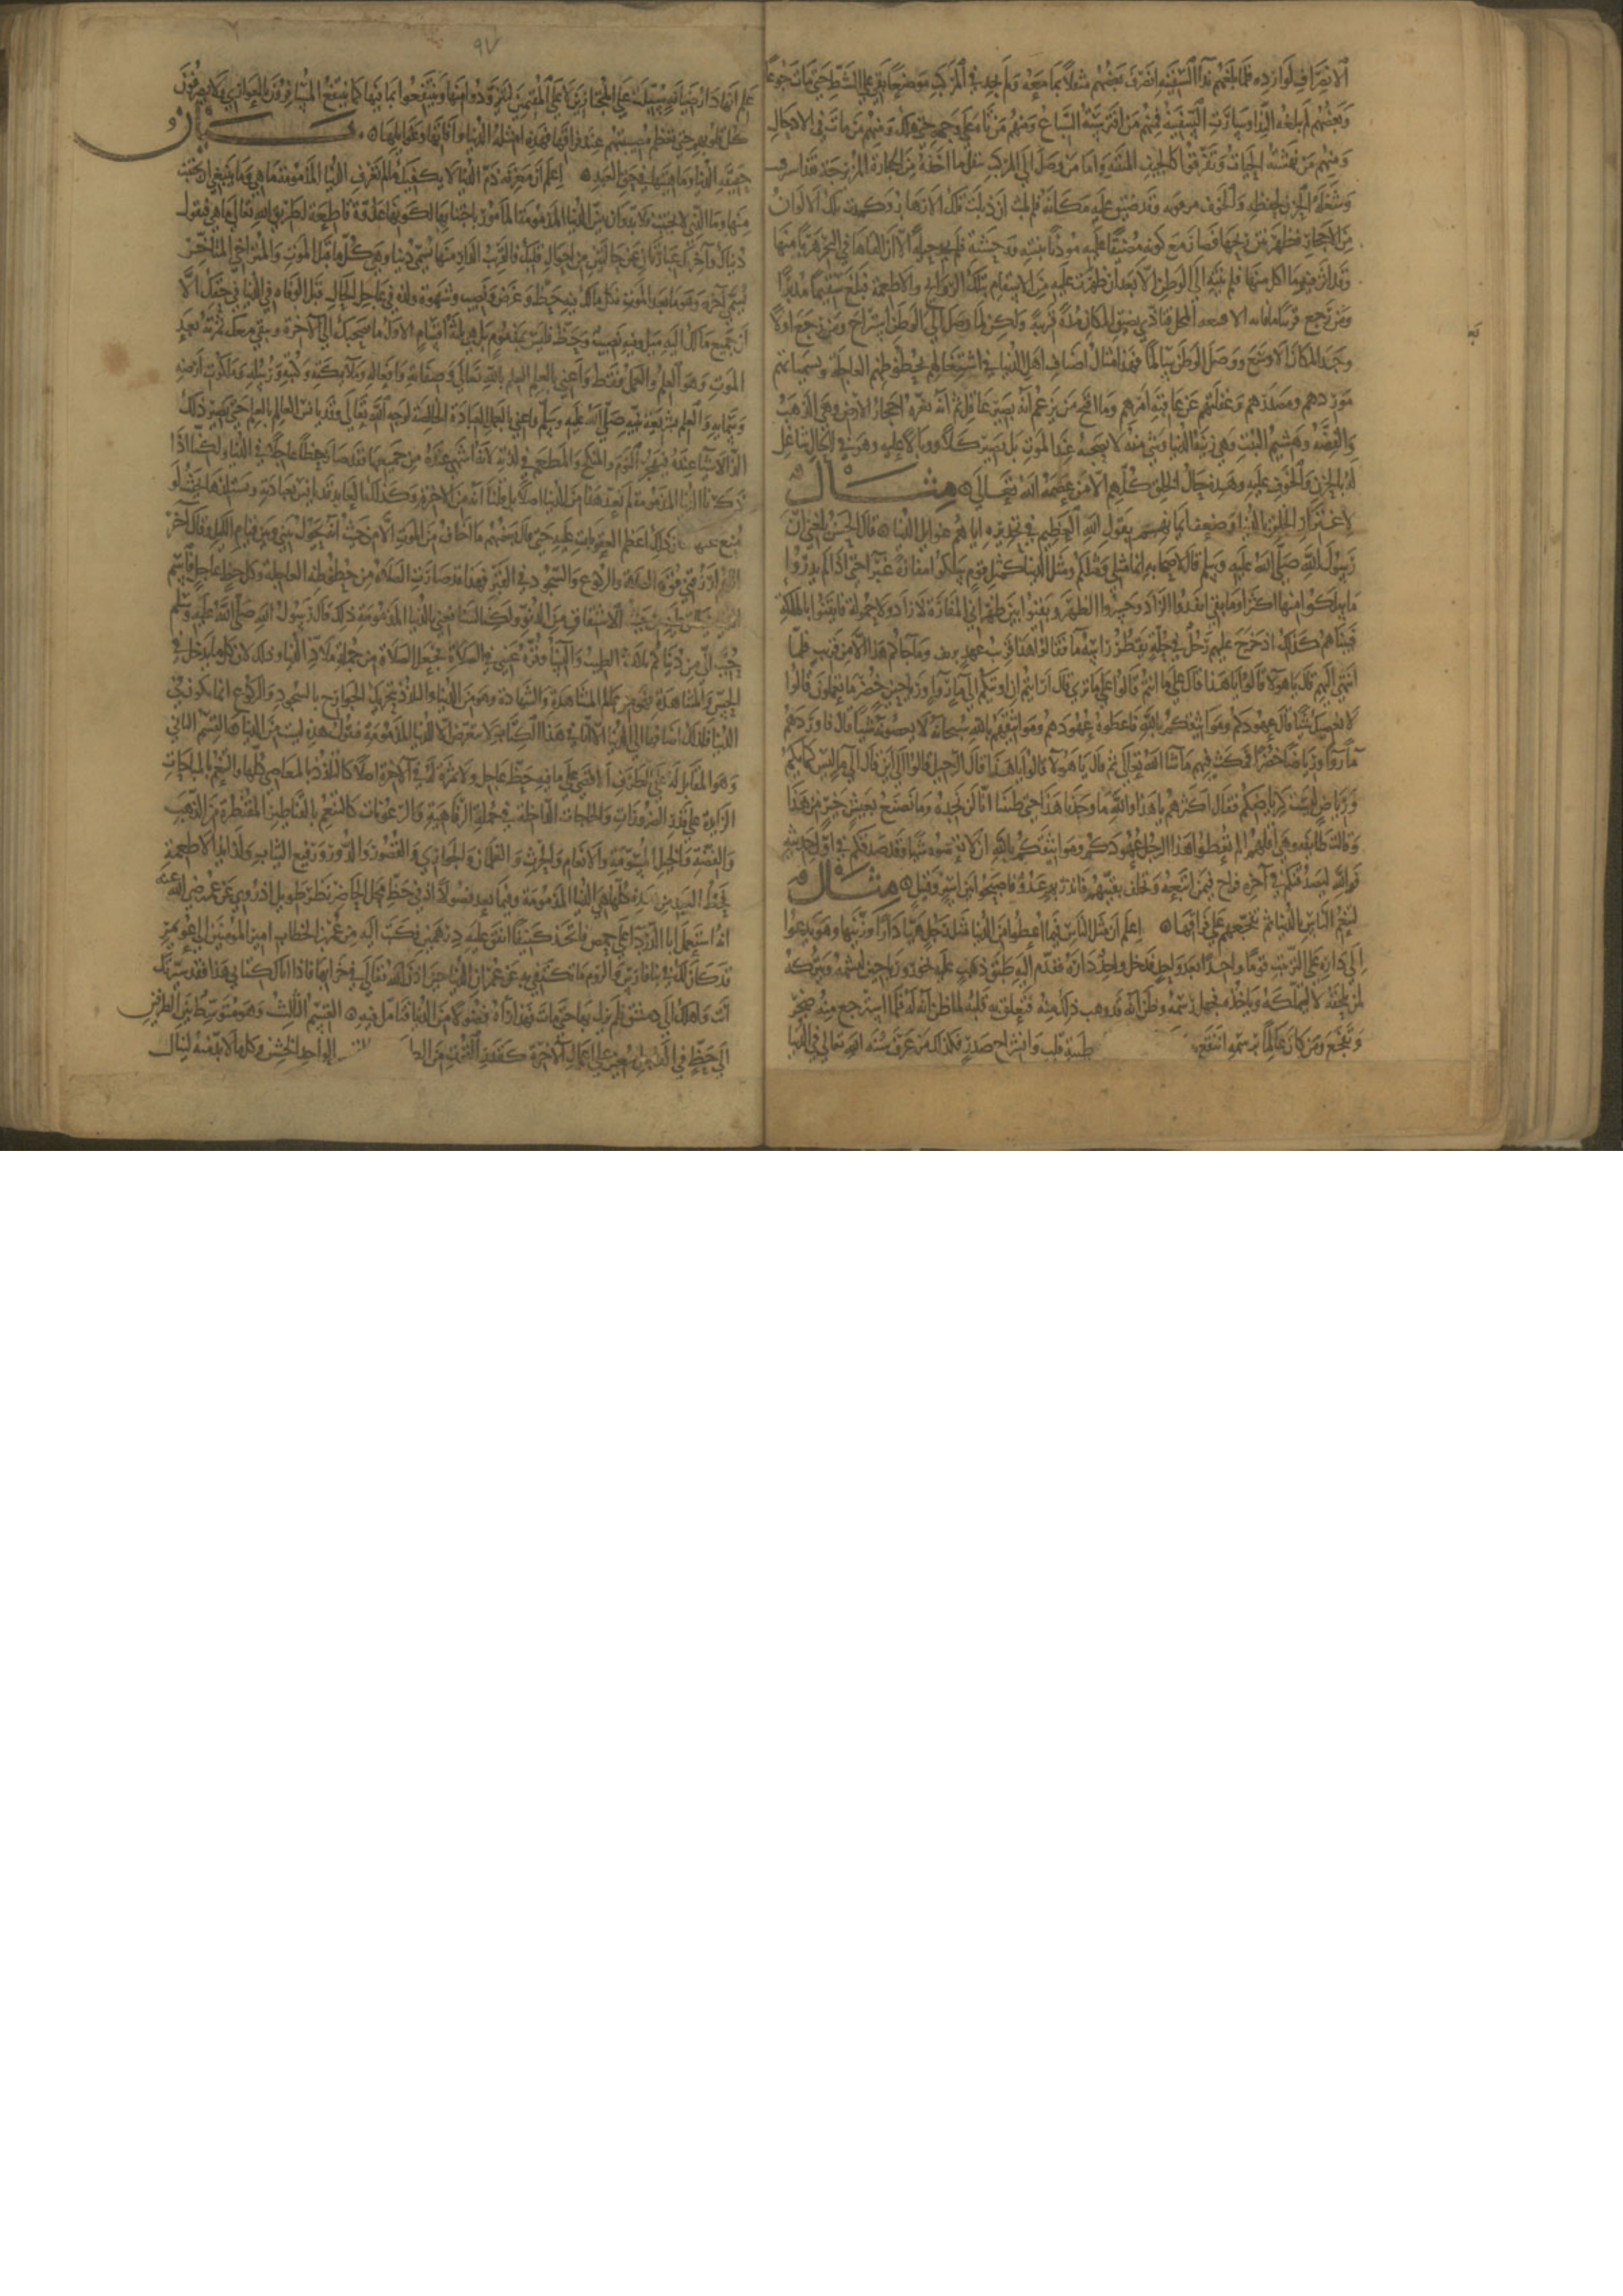 الانصراف لواردة فلما بلغهم نداء السفينة انصرف بعضهم مثقلا بما معه ولم يجد في المركب موضعا بقي على الشط حتى مات جوعا
وبعضهم لم يبلغه النداء وسارت السفينة فمنهم من افترسته السباع ومنهم من تاه على وجهه حتى هلك ومنهم من مات في الاوحال
ومنهم من نهشته الحيات وتفرقوا كالجيف المنتنة واما من وصل الى المركب بثقل ما اخذه من الحجارة المزبرجة فقد استرقته
وشغله الحزن بحفظها والخوف من فوتها وقد ضيق عليه مكانه فلم يلبث ان ذبلت تلك الازهار وكمدت تلك الالوان
من الاحجار فظهر نتن ريحها فصارت مع كونه مضيقا عليه موذيا بنتنه ووحشته فلم يجد حيلة الا ان القاها في البحر هربا منها
وقد اثر فيه ما اكل منها فلم ينته الى الوطن الا بعد ان ظهرت عليه من الاسقام بتلك الروائح والاطعمة فبلغ سقيما مدبرا
ومن رجع قريبا ما فاته الا سعة المحل فتاذى بضيق المكان مدة قريبة ولكن لما وصل الى الوطن استراح ومن رجع اولا
وجد المكان الاوسع ووصل الوطن سالما فهذا مثال اصناف اهل الدنيا في اشتغالهم بحظوظهم العاجلة ونسيانهم
موردهم ومصدرهم وغفلتهم عن عاقبة امرهم وما اقبح من يزعم انه بصير عاقل ثم انه تغره احجار الارض وهي الذهب
والفضة وهشيم النبت وهي زينة الدنيا وشي منه لا يصحبه عند الموت بل يصير كلا ووبالا عليه وهو في الحال شاغل
له بالحزن والخوف عليه وهذه حال الخلق كلهم الا من عصمه الله تعالى ۞ مثال
لاغترار الخلق بالدنيا وضعف ايمانهم بقول الله العظيم في تحذيره اياهم غوايل الدنيا ۞ قال الحسن بلغني ان
رسول الله صلى الله عليه وسلم قال لاصحابه انما مثلي ومثلكم ومثل الدنيا كمثل قوم سلكوا مفازة غبرا حتى اذا لم يدروا
ما سلكوا منها اكثر او ما بقي انفدوا الزاد وحسروا الظهر وبقوا بين ظهراني المفازة لا زاد ولا حمولة فايقنوا بالهلكة
فبينا هم كذلك اذ خرج عليهم رجل في حلة يقطر راسه ماء فقالوا هذا قريب عهد بريف وما جاكم هذا الا من قريب فلما
انتهى اليهم قال يا هولا قالوا يا هذا قال على ما انتم قالوا على ما ترى قال ارايتم ان هديتكم الى ماء روا ورياض خضر ما تعملون قالوا
لا نعصيك شيا قال عهودكم ومواثيقكم بالله فاعطوه عهودهم ومواثيقهم بالله سبحانه لا يعصونه شيا قال فاوردهم
ماء روا ورياضا خضرا فمكث فيهم ما شا الله تعالى ثم قال يا هولا قالوا يا هذا قال الرحيل قالوا الى اين قال الى ما ليس كمايكم
ورياض ليست كرياضكم فقال اكثرهم يا هذا والله ما وجدنا هذا حتى ظننا انا لن نجده وما نصنع بعيش خير من هذا
وقالت طايفة وهي اقلهم الم تعطوا هذا الرجل عهودكم ومواثيقكم بالله ان لا تعصوه شيا وقد صدقكم في اول حديثه
فوالله ليصدقنكم في اخره فراح فيمن اتبعه وتخلف بقيتهم فاندر بهم عدو فاصبحوا بين اسير وقتيل ۞ مثال
لتنعم الناس بالدنيا ثم تفجعهم على فراقها ۞ اعلم ان مثل الناس فيما اعطوا من الدنيا مثل رجل هيا دارا وزينها وهو يدعوا
الى داره على الترتيب قوما واحدا بعد واحد فدخل واحد داره فقدم اليه طبق ذهب عليه بخور ورياحين ليشمه ويتركه
لمن يلحقه لا ليملكه وياخذه فجهل رسمه وظن انه قد وهب ذلك منه فتعلق به قلبه لما ظن انه له فلما استرجع منه ضجر
وتفجع ومن كان عالما برسمه انتفع به طيبة قلب وانشراح صدر فكذلك من عرف سنة الله تعالى في الدنيا
٩٧
علم انها دار ضيافة سبلت على المجتازين لا على المقيمين ليتزودوا منها وينتفعوا بما فيها كما ينتفع المسافرون بالعواري ولا يصرفون
كل قلوبهم حتى تعظم مصيبتهم عند فراقها فهذه امثلة الدنيا وآفاتها وغوايلها ۞ بيان
حقيقة الدنيا وماهيتها في حق العبد ۞ اعلم ان معرفة ذم الدنيا لا يكفيك ما لم تعرف الدنيا المذمومة ما هي وما ينبغي ان تجتنب
منها وما الذي لا تجتنب فلا بد وان نبين الدنيا المذمومة المامور باجتنابها لكونها عدوة قاطعة لطريق الله تعالى ما هي فنقول
دنياك واخرتك عبارتان عن حالتين من احوال قلبك فالقريب الداني منها يسمى دنيا وهي كل ما قبل الموت والمتراخي المتاخر
يسمى آخرة وهو ما بعد الموت فكل ما لك فيه حظ وغرض ونصيب وشهوة ولذة في عاجل الحال قبل الوفاة فهي الدنيا في حقك الا
ان جميع ما لك اليه ميل وفيه نصيب وحظ فليس بمذموم بل هي ثلاثة اقسام الاول ما يصحبك الى الاخرة ويبقى معك ثمرته بعد
الموت وهو العلم والعمل فقط واعني بالعلم العلم بالله تعالى وصفاته وافعاله وملايكته وكتبه ورسله وملكوت ارضه
وسمايه والعلم بشريعة نبيه صلى الله عليه وسلم واعني بالعمل العبادة الخالصة لوجه الله تعالى وقد يانس العالم بالعلم حتى يصير ذلك
الذ الاشيا عنده فيهجر النوم والمنكح والمطعم في لذته لانه اشهى عنده من جميعها فقد صار حظا عاجلا في الدنيا ولكنا اذا
ذكرنا الدنيا المذمومة لم نعد هذا من الدنيا اصلا بل قلنا انه من الاخرة وكذلك العابد قد يانس بعبادته ويستلذها بحيث لو
منع عنها لكان ذلك اعظم العقوبات عليه حتى قال بعضهم ما اخاف من الموت الا من حيث انه يحول بيني وبين قيام الليل وقال آخر
اللهم ارزقني قوة الصلاة والركوع والسجود في القبر فهذا قد صارت الصلاة من حظوظه العاجلة وكل حظ عاجل فاسم
الدنيا ينطلق عليه من حيث الاشتقاق من الدنو ولكنا لسنا نعني بالدنيا المذمومة ذلك وقال رسول الله صلى الله عليه وسلم
حبب الي من دنياكم ثلاث الطيب والنسا وقرة عيني في الصلاة فجعل الصلاة من جملة ملاذ الدنيا وذلك لان كل ما يدخل في
الحس والمشاهدة فهو من عالم المشاهدة والشهادة وهو من الدنيا والتلذذ بتحريك الجوارح بالسجود والركوع انما يكون في
الدنيا فلذلك اضافها الى الدنيا الا انا في هذا الكتاب لا نتعرض الا للدنيا المذمومة فنقول هذه ليست من الدنيا ۞ القسم الثاني
وهو المقابل له على الطرف الاقصى كل ما فيه حظ عاجل ولا ثمرة له في الآخرة اصلا كالتلذذ بالمعاصي كلها والتنعم بالمباحات
الزايدة على قدر الضرورات والحاجات الداخلة في جملة الرفاهية والرعونات كالتنعم بالقناطير المقنطرة من الذهب
والفضة والخيل المسومة والانعام والحرث والغلمان والجواري والقصور والدور ورفيع الثياب ولذايذ الاطعمة
فحظ العبد من هذه كلها هي الدنيا المذمومة وفيما يعد فضولا او في محل الحاجة نظر طويل اذ روي عن عمر رضي الله عنه
انه استعمل ابا الدرداء على حمص فاتخذ كنيفا انفق عليه درهمين فكتب اليه من عمر بن الخطاب امير المومنين الى عويمر
قد كان لك في بنا فارس والروم ما تكتفي به عن عمران الدنيا حين اذن الله تعالى في خرابها فاذا اتاك كتابي هذا فقد سيرتك
انت واهلك الى دمشق فلم يزل بها حتى مات فهذا رآه فضولا من الدنيا فتامل فيه ۞ القسم الثالث وهو متوسط بين الطرفين
كل حظ في الدنيا معين على اعمال الآخرة كقدر القوت من الطعام والقميص الواحد الخشن وكل ما لا بد منه ليتاتى